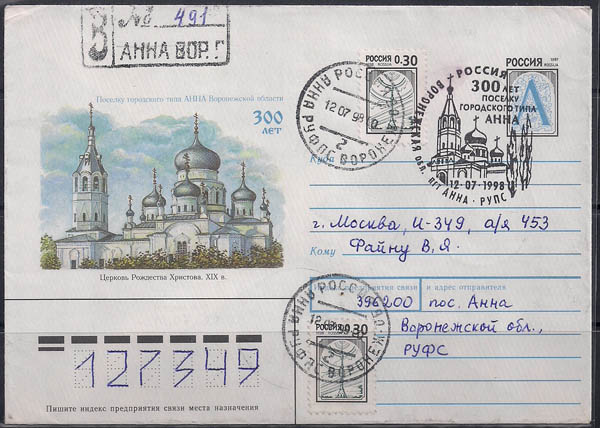 З № 491
АННА ВОР. Г
Поселку городского типа АННА Воронежской области
300
ЛЕТ
Церковь Рождества Христова. XIX в.
РОССИЯ 0.30
ROSSIJA
АННА РОС
12.07.98
2
ВОРОНЕЖ
РОССИЯ
300 ЛЕТ
ПОСЕЛКУ
ГОРОДСКОГО ТИПА
АННА
ВОРОНЕЖСКАЯ ОБЛ. ПГТ АННА · РУПС
12-07-1998
РОССИЯ
ROSSIJA
А
Куда
г. Москва, И-349, а/я 453
Кому Файну В.Я.
предприятия связи и адрес отправителя
396200 пос. Анна
Воронежской обл.,
РУФС
АННА РОС
12.07
0.30
2
ВОРОНЕЖ
127349
Пишите индекс предприятия связи места назначения